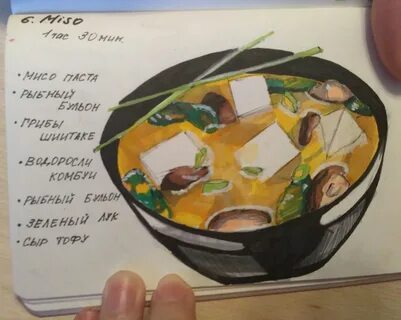 6. Miso
1 час 30 мин.
• МИСО ПАСТА
• РЫБНЫЙ
БУЛЬОН
• ГРИБЫ
ШИИТАКЕ
• ВОДОРОСЛИ
КОМБУИ
• РЫБНЫЙ БУЛЬОН
• ЗЕЛЕНЫЙ ЛУК
• СЫР ТОФУ